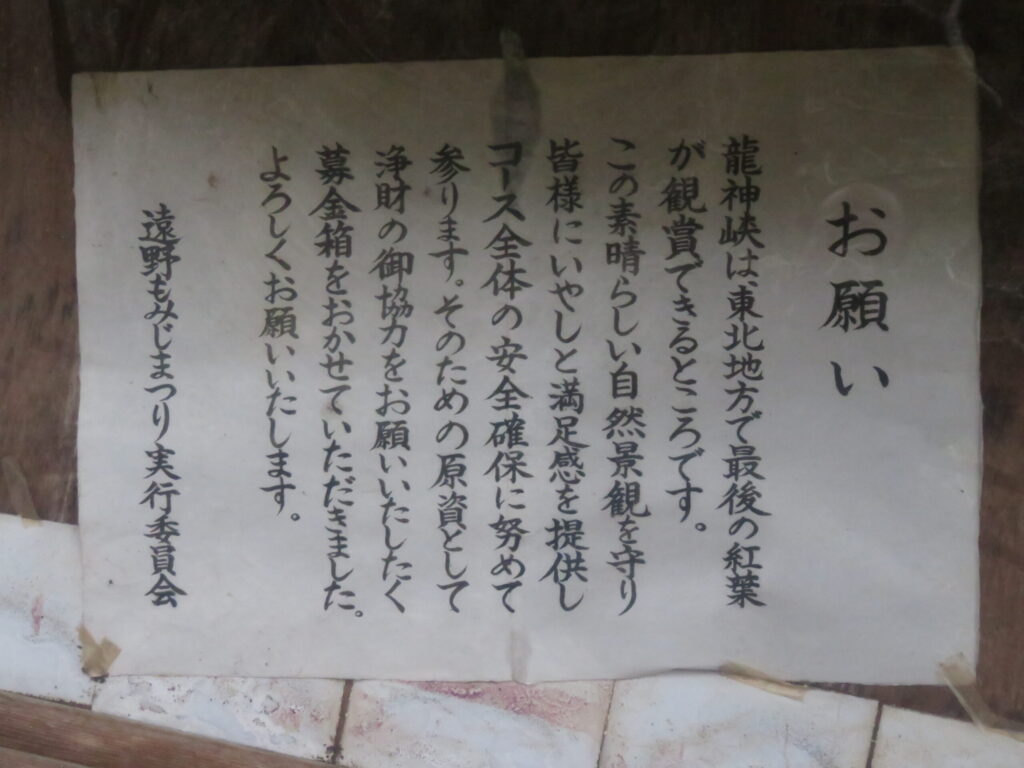 お願い
龍神峡は、東北地方で最後の紅葉
が観賞できるところです。
この素晴らしい自然景観を守り
皆様にいやしと満足感を提供し
コース全体の安全確保に努めて
参ります。そのための原資として
浄財の御協力をお願いいたしたく
募金箱をおかせていただきました。
よろしくお願いいたします。
遠野もみじまつり実行委員会